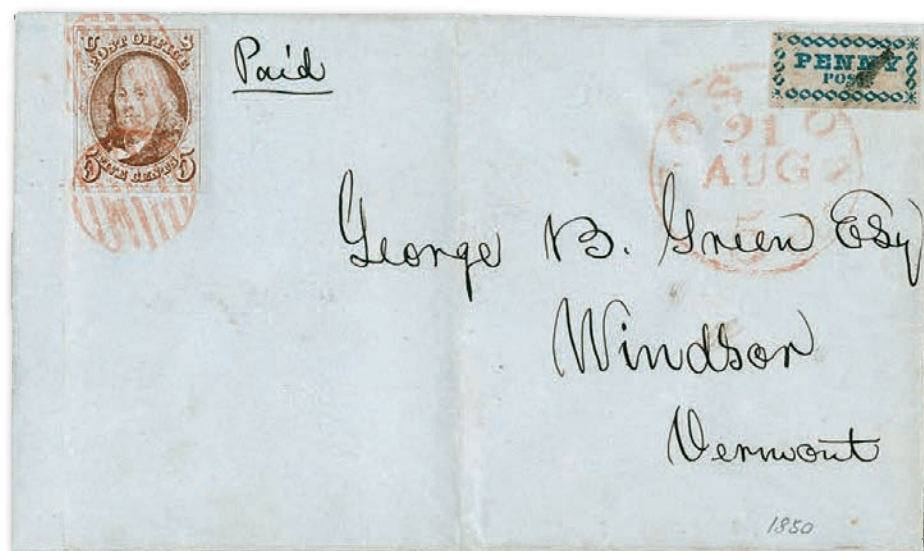 U S
POST OFFICE
5 FIVE CENTS 5
Paid
PENNY
POST
21
AUG
5
George B. Green Esq
Windsor
Vermont
1850